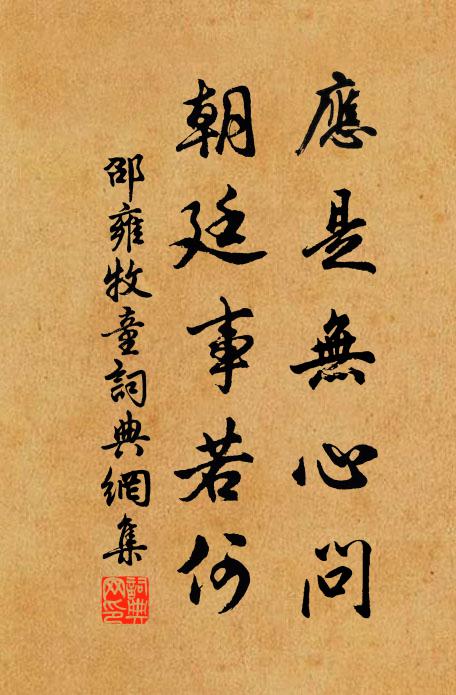 應是無心問
朝廷事若何
邵雍牧童詞典網集
詞典網印